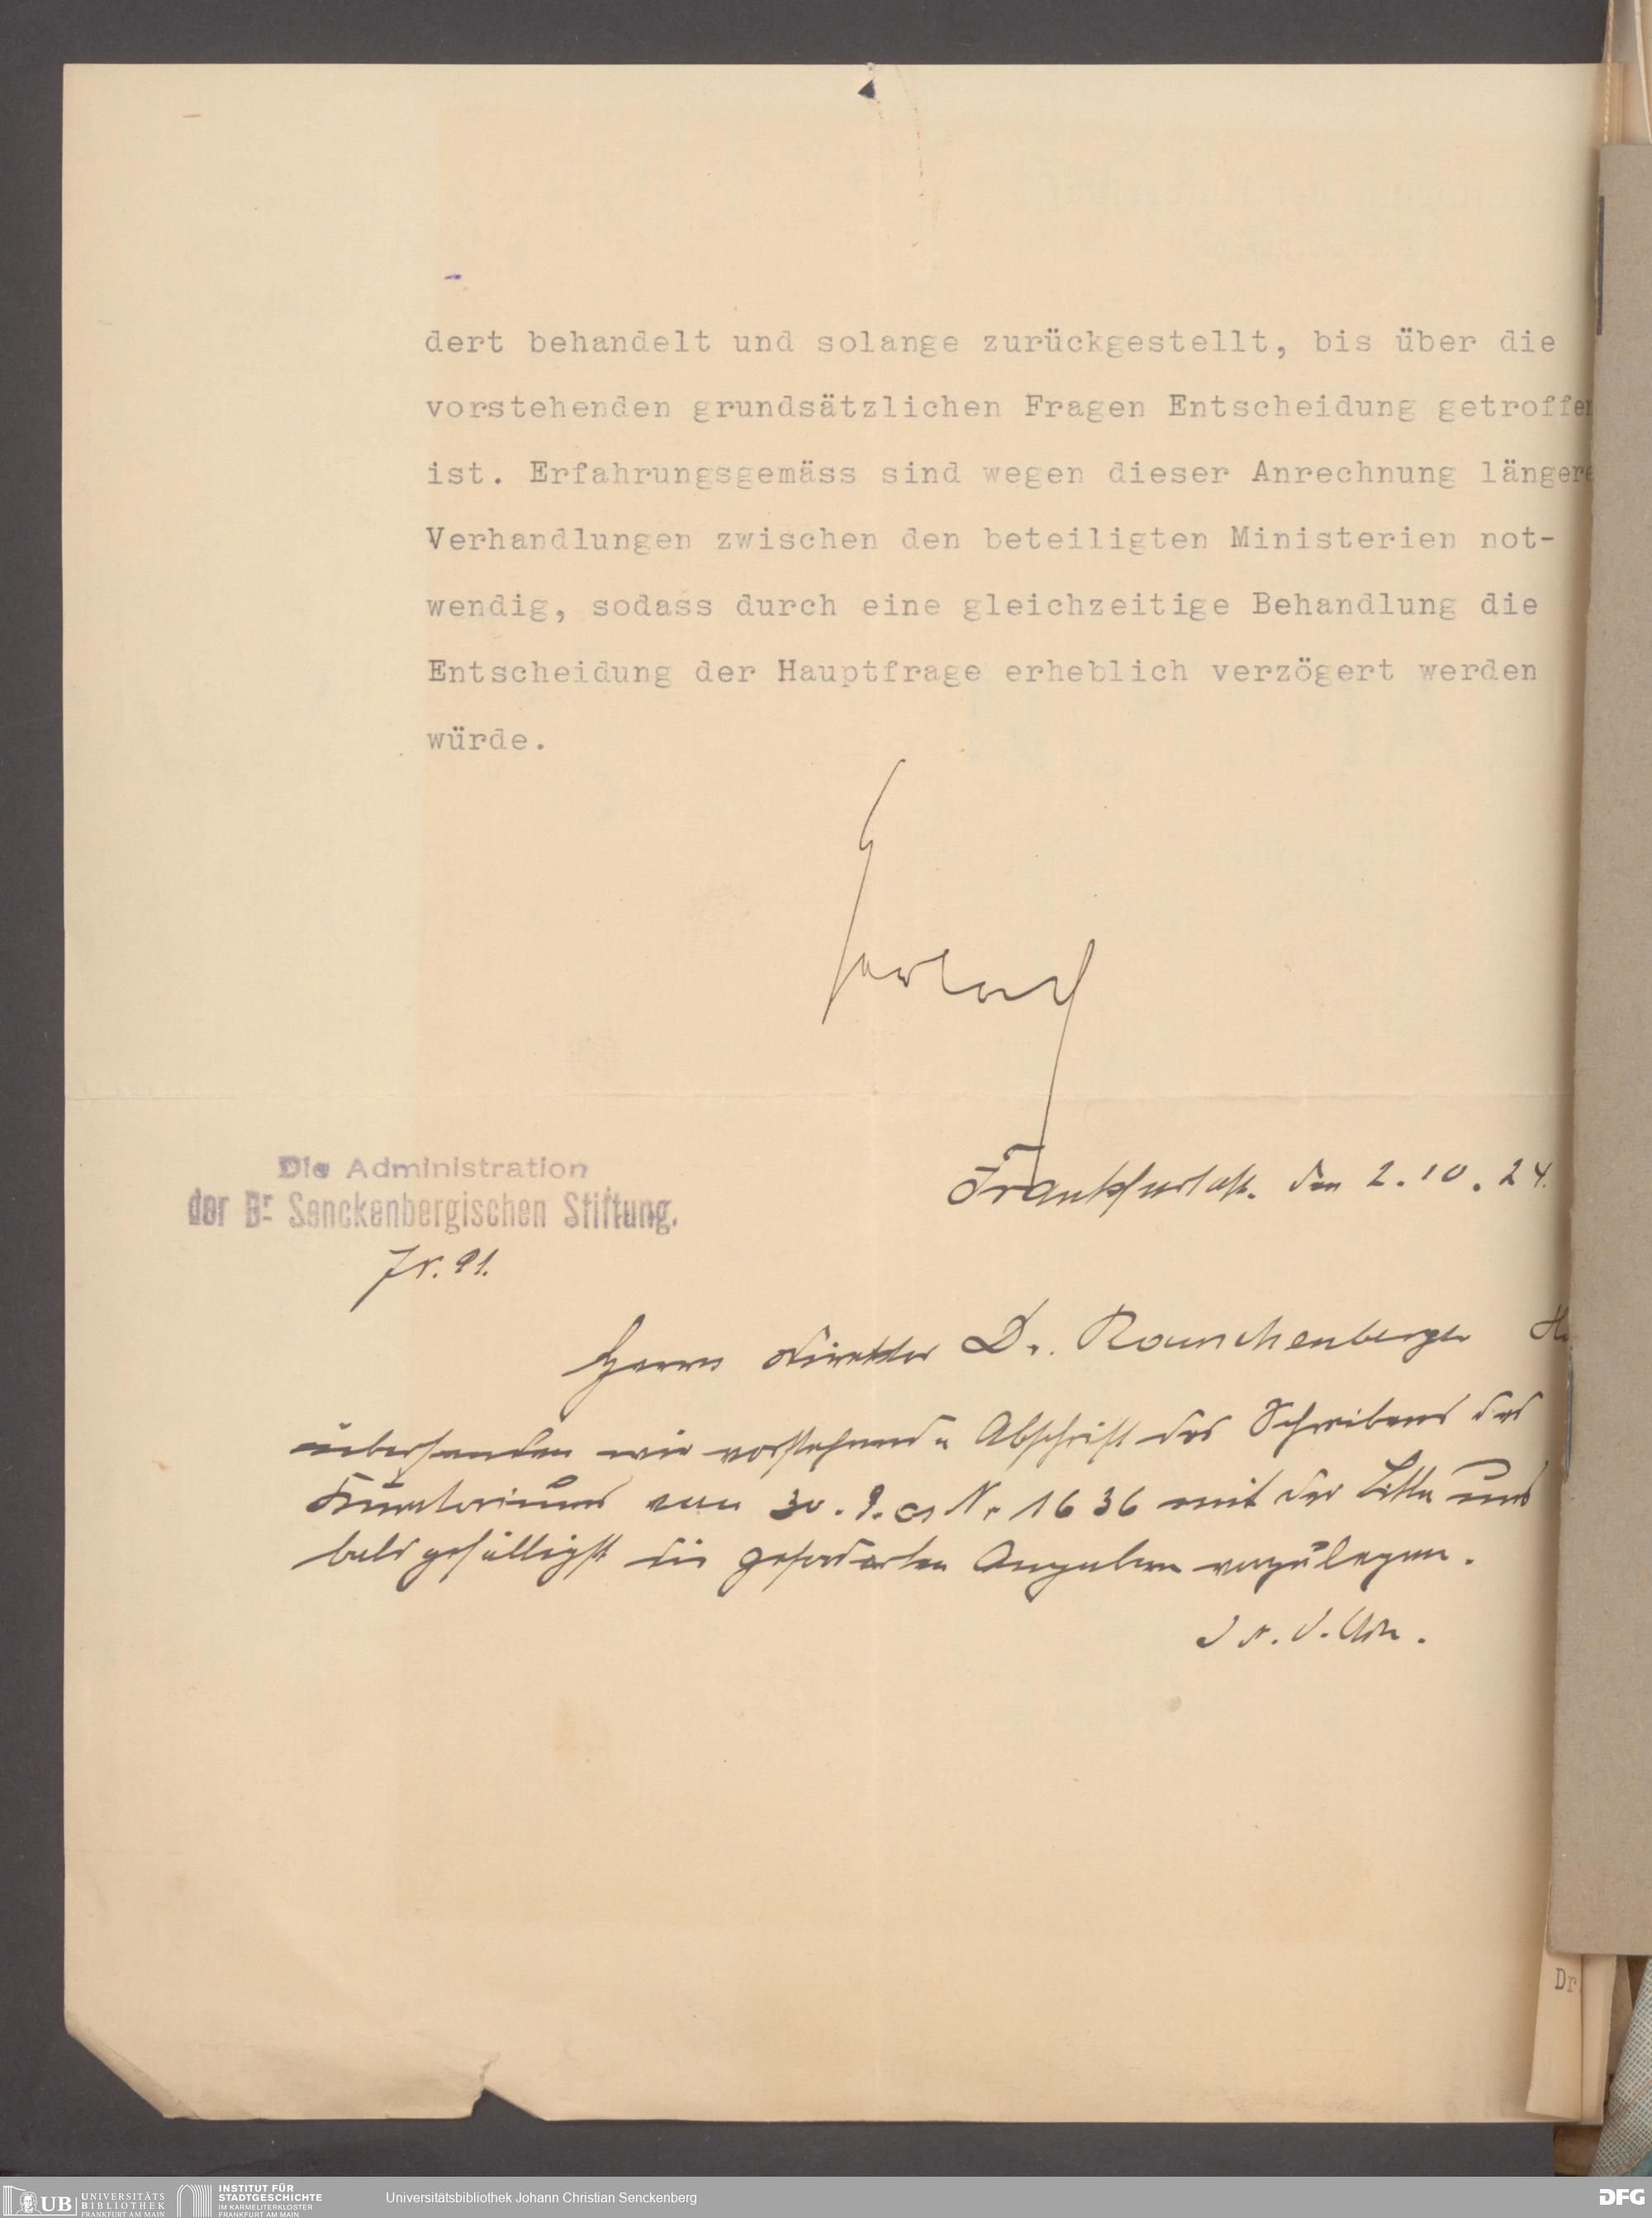 dert behandelt und solange zurückgestellt, bis über die
vorstehenden grundsätzlichen Fragen Entscheidung getroffen
ist. Erfahrungsgemäss sind wegen dieser Anrechnung längere
Verhandlungen zwischen den beteiligten Ministerien not-
wendig, sodass durch eine gleichzeitige Behandlung die
Entscheidung der Hauptfrage erheblich verzögert werden
würde.
Die Administration
der Dr. Senckenbergischen Stiftung.
Frankfurt a/M. den 2.10.24.
91.
Herrn Direktor Dr. Rauschenberger
übersenden wir vorstehende Abschrift des Schreibens des
Kuratoriums vom 30.9. Nr 1636 mit der Bitte uns
bald gefälligst die geforderten Angaben vorzulegen.
Dr
UB UNIVERSITÄTS
BIBLIOTHEK
FRANKFURT AM MAIN
INSTITUT FÜR
STADTGESCHICHTE
IM KARMELITERKLOSTER
FRANKFURT AM MAIN
Universitätsbibliothek Johann Christian Senckenberg
DFG